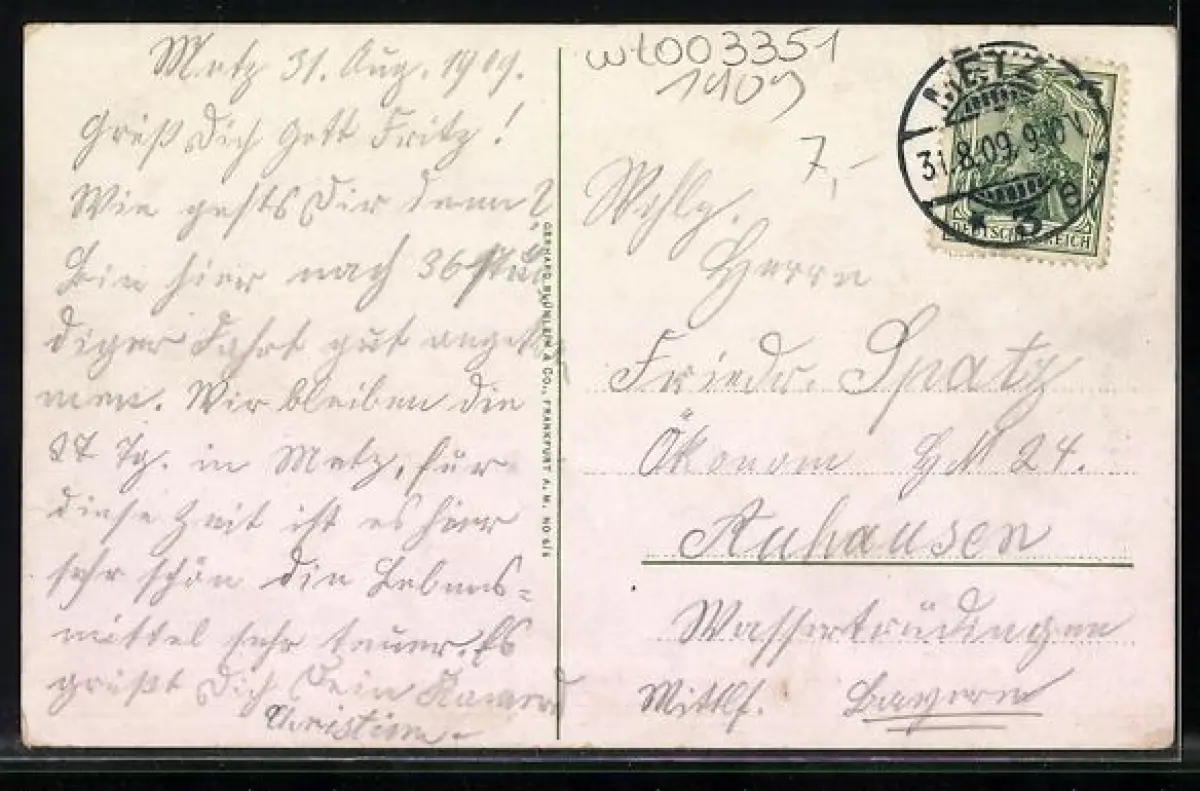 Metz 31. Aug. 1909.
Grüß Dich Gott Fritz!
Wie gehts Dir denn?
Bin hier nach 36 stün
diger Fahrt gut angekom
men. Wir bleiben die
Tg. in Metz, für
diese Zeit ist es hier
sehr schön die Lebens=
mittel sehr teuer. Es
grüßt Dich Dein Kamerad
Christian
GERHARD BLÜMLEIN & CO., FRANKFURT A. M.
wt003351
1909
7,-
METZ
31.8.09. 9-10 V.
* 3 e
DEUTSCHES REICH
Wohlg.
Herrn
Friedr. Spatz
Ökonom HN 24.
Auhausen
Wassertrüdingen
Mittlf. Bayern